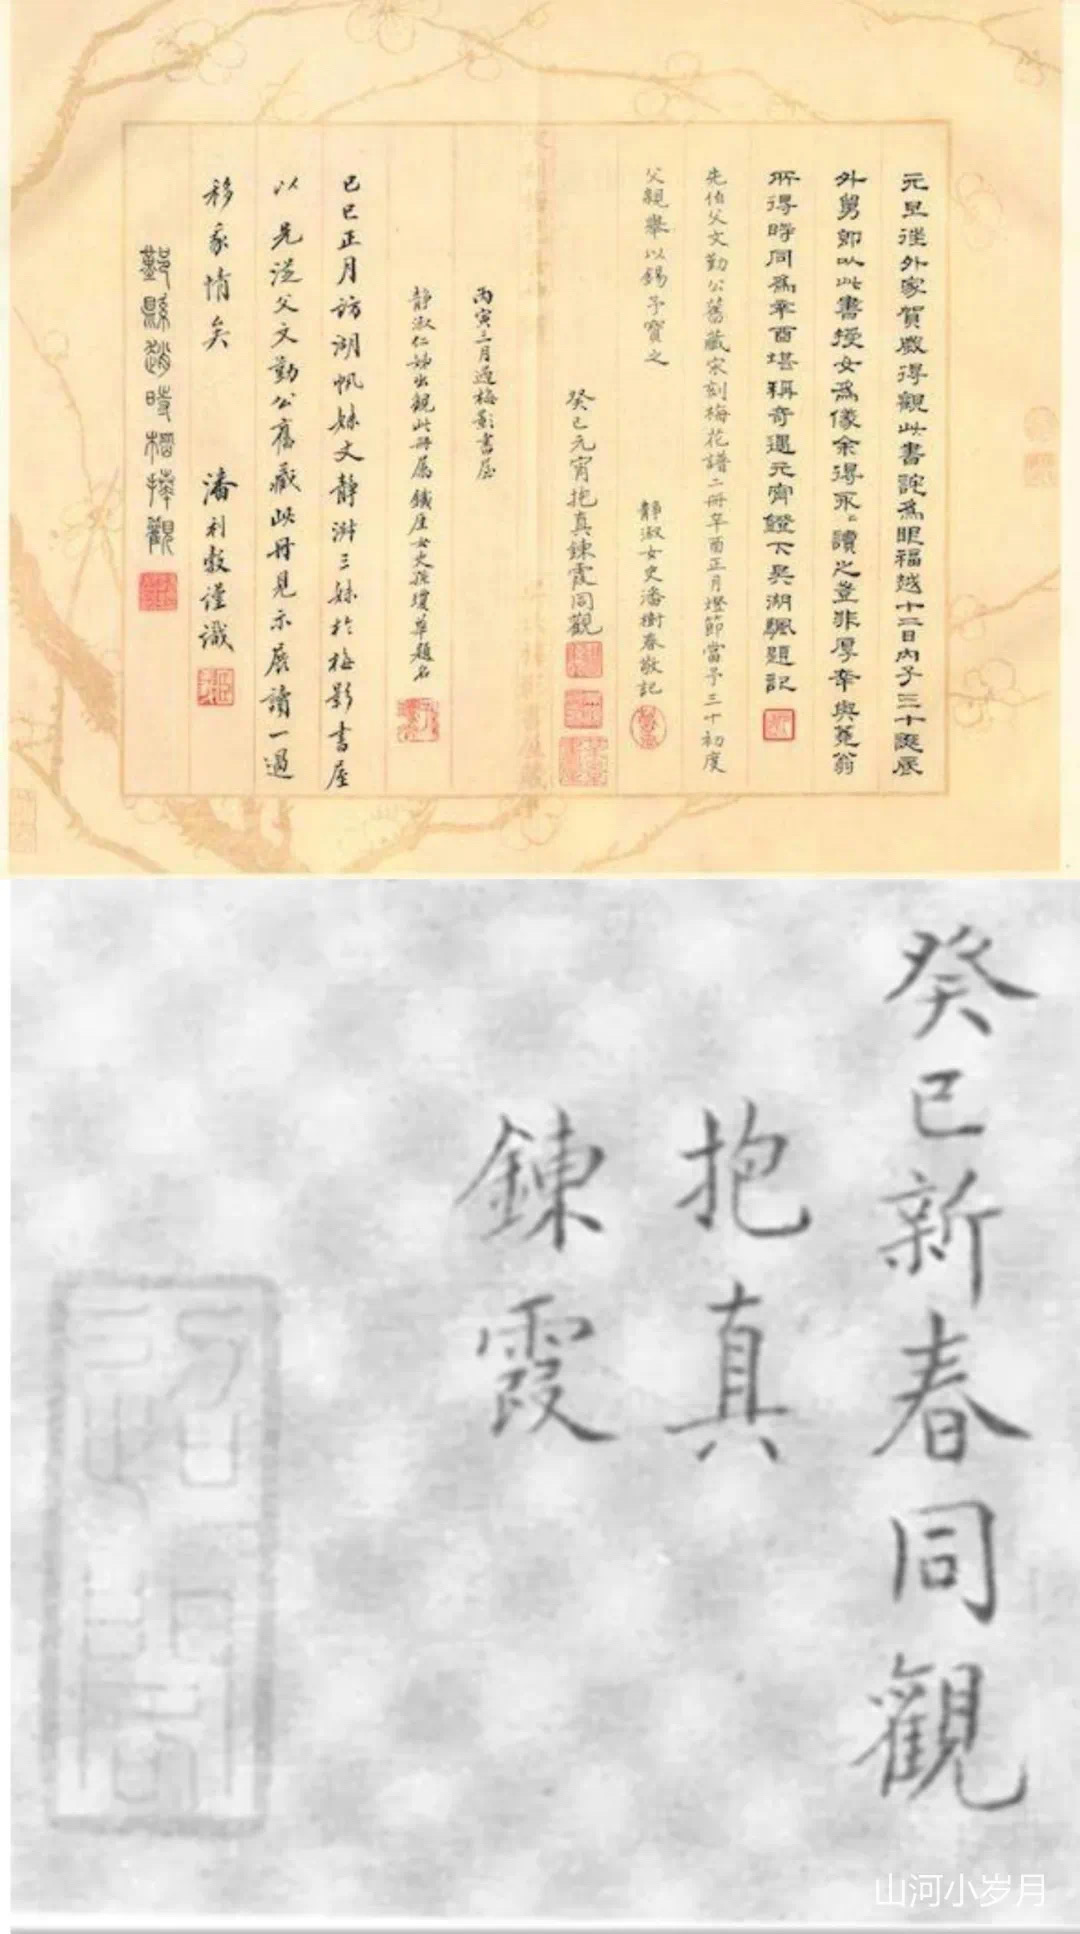 元旦往外家賀歲得觀此書詫為眼福越十二日內子三十誕辰
外舅即以此書授女為儀余得永永讀之豈非厚幸與蒐翁
所得時同為辛酉堪稱奇遇元宵鐙下吳湖颿題記
先伯父文勤公舊藏宋刻梅花譜二冊辛酉正月燈節當予三十初度
父親舉以錫予寶之
靜淑女史潘樹春敬記
癸巳元宵抱真鍊霞同觀
丙寅三月過梅影書屋
靜淑仁姊出觀此冊屬
己巳正月訪湖帆妹丈靜淑三妹於梅影書屋
以先從父文勤公舊藏此冊見示展讀一過
移我情矣
潘利穀謹識
鄞縣趙時棡拜觀
癸巳新春同觀
抱真
鍊霞
山河小岁月